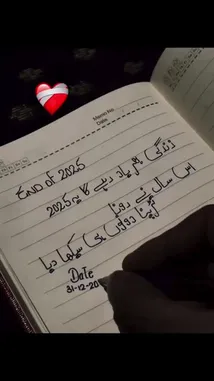 Memo No.
Date
End of 2025
زندگی بھر یاد رہے گا یہ 2025
اس سال نے رونا
دونوں ہی سکھا دیا
Date
31-12-20